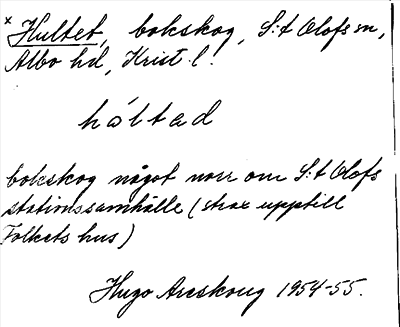 * Hultet, bokskog, S:t Olofs sn,
Albo hd, Krist. l.
håltad
bokskog något norr om S:t Olofs
stationssamhälle (strax upptill
Folkets hus)
Hugo Areskoug 1954-55.